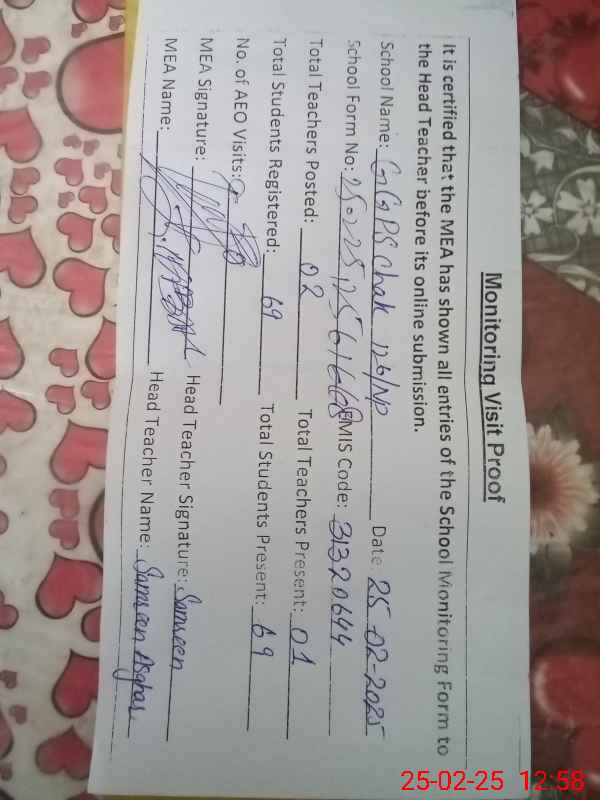 Monitoring Visit Proof
It is certified that the MEA has shown all entries of the School Monitoring Form to
the Head Teacher before its online submission.
School Name: GGPS Chak 126/NP Date: 25-02-2025
School Form No: EMIS Code: 31320644
Total Teachers Posted: 02 Total Teachers Present: 01
Total Students Registered: 69 Total Students Present: 69
No. of AEO Visits:
MEA Signature: Head Teacher Signature: Samreen
MEA Name: Head Teacher Name: Samreen Asghar
25-02-25 12:58